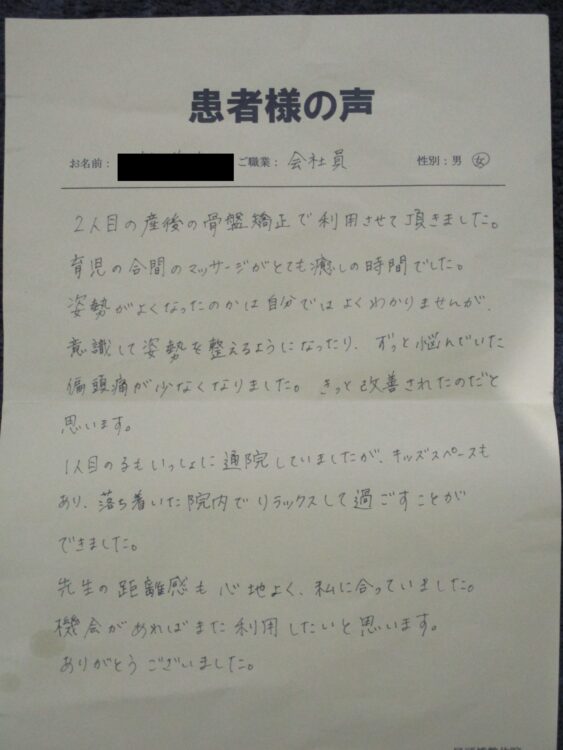 患者様の声
お名前： ご職業： 会社員 性別：男 女
2人目の産後の骨盤矯正で利用させて頂きました。
育児の合間のマッサージがとても癒しの時間でした。
姿勢がよくなったのかは自分ではよくわかりませんが、
意識して姿勢を整えるようになったり、ずっと悩んでいた
偏頭痛が少なくなりました。きっと改善されたのだと
思います。
1人目の子もいっしょに通院していましたが、キッズスペースも
あり、落ち着いた院内でリラックスして過ごすことが
できました。
先生の距離感も心地よく、私に合っていました。
機会があればまた利用したいと思います。
ありがとうございました。